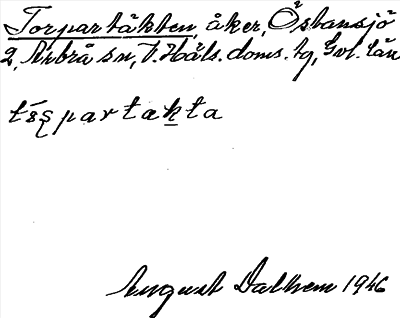 Torpartäkten, åker, Östansjö
2, Arbrå sn, V. Häls. doms. hg, Gvl. län
tɷ́s̨partæk̲ta
August Dalhem 1946